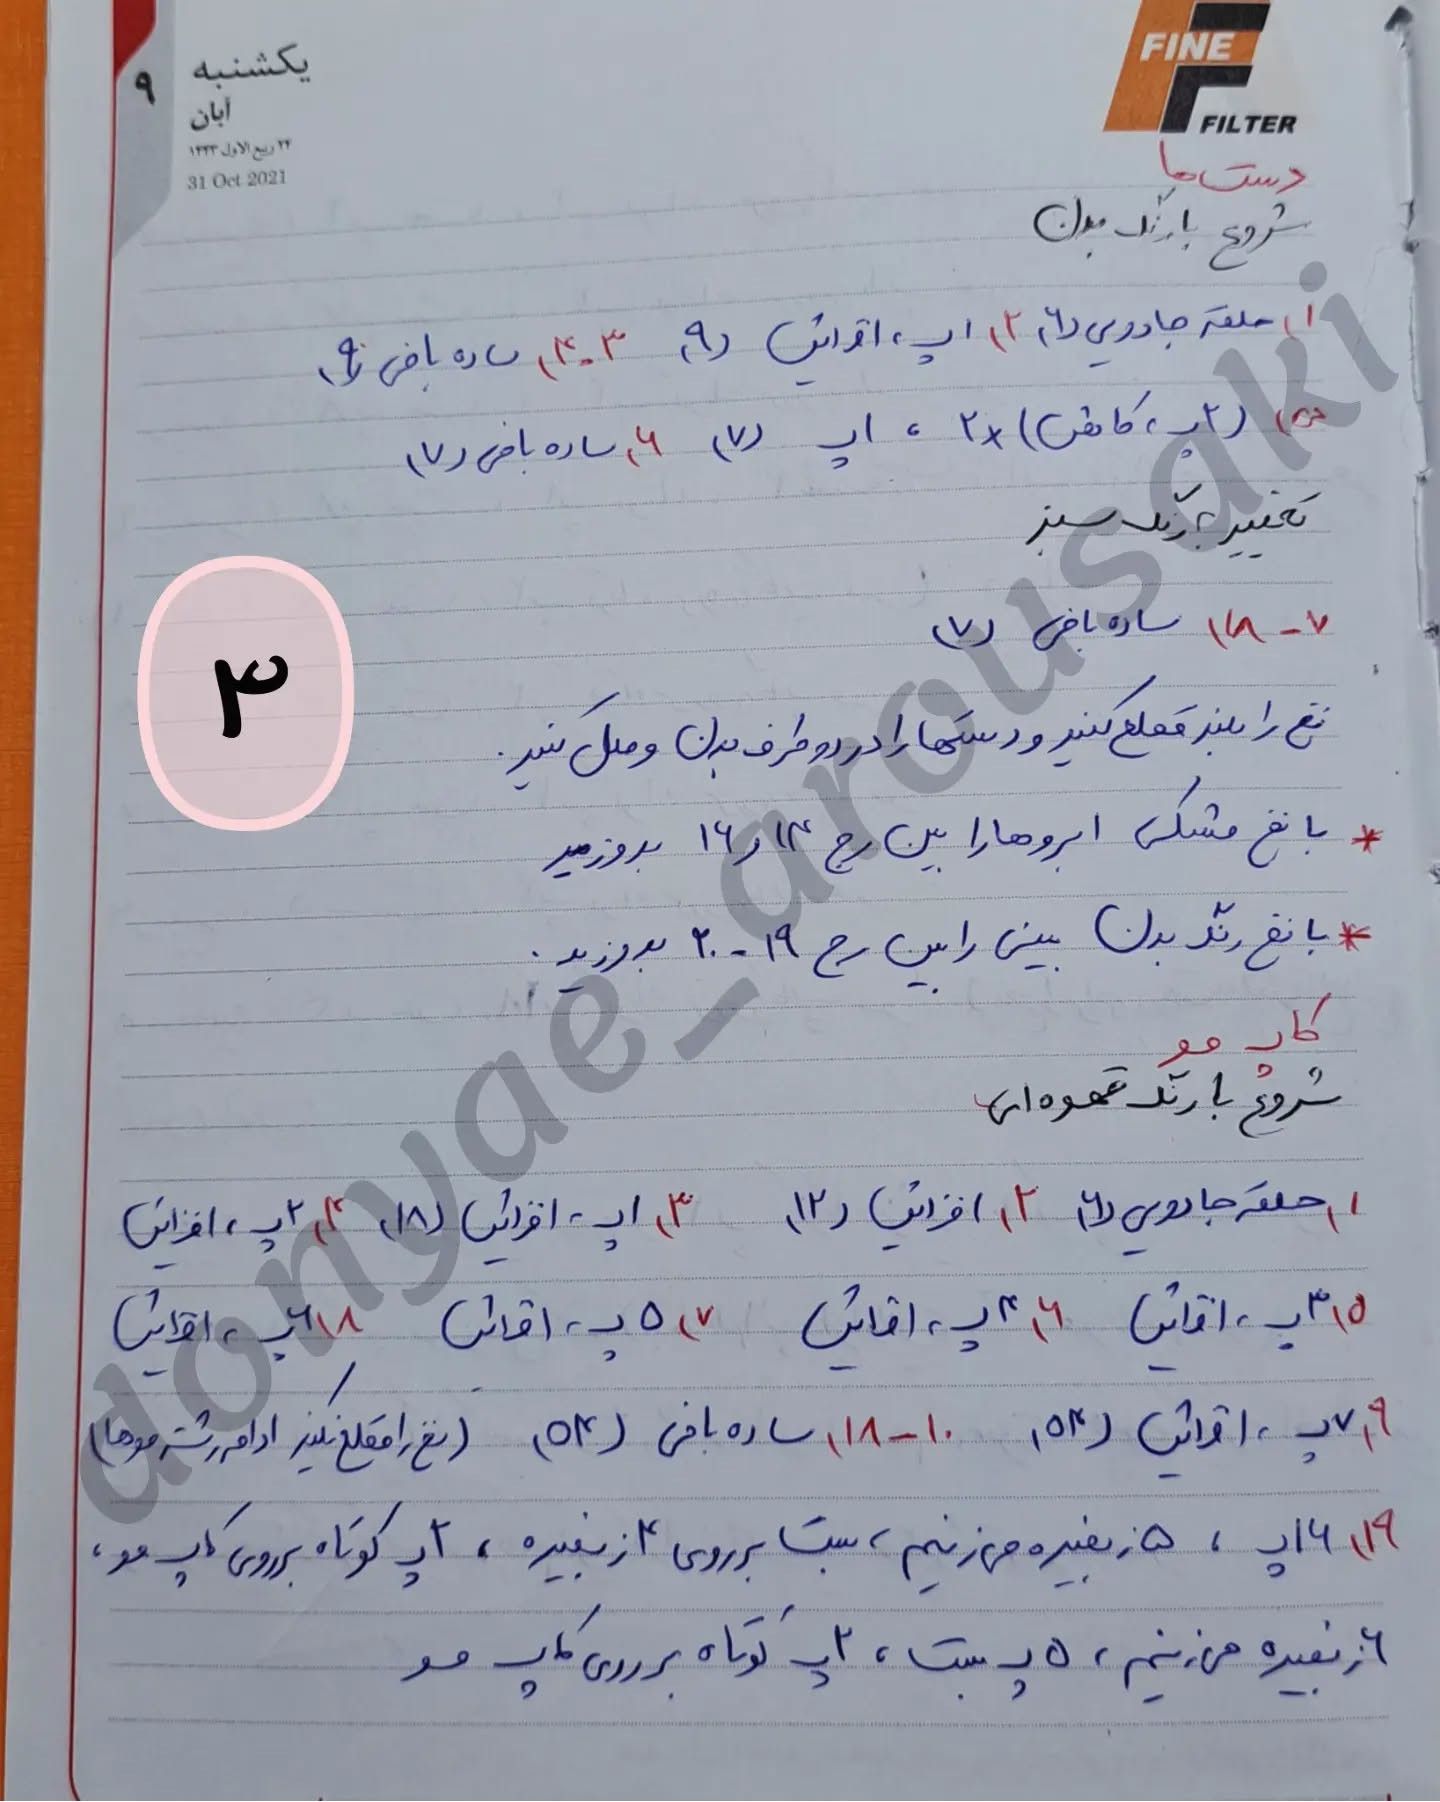 FINE
FILTER
یکشنبه
۹
آبان
۲۴ ربیع الاول ۱۴۴۳
31 Oct 2021
دست ها
شروع با رنگ بدن
۱) حلقه جادویی (۶) ۲) ۱پ، افزایش (۹) ۳-۴) ساده بافی (۹)
۵) (۲پ، کاهش)×۲ ، ۱پ (۷) ۶) ساده بافی (۷)
تغییر به رنگ سبز
۷-۱۸) ساده بافی (۷)
نخ را بلند قطع کنید و دستها را در دو طرف بدن وصل کنید.
* با نخ مشکی ابروها را بین رج ۱۴ و ۱۶ بدوزید
* با نخ رنگ بدن بینی را بین رج ۱۹-۲۰ بدوزید.
۳
کاپ مو
شروع با رنگ قهوه ای
۱) حلقه جادویی (۶) ۲) افزایش (۱۲) ۳) ۱پ، افزایش (۱۸) ۴) ۲پ، افزایش
۵) ۳پ، افزایش ۶) ۴پ، افزایش ۷) ۵پ، افزایش ۸) ۶پ، افزایش
۹) ۷پ، افزایش (۵۴) ۱۰-۱۸) ساده بافی (۵۴) (نخ را قطع نکنید ادامه رشته موها)
۱۹) ۱۶پ ، ۵ زنجیره می زنیم ، بست بر روی ۴ زنجیره ، ۲پ کوتاه بر روی کاپ مو ،
۶ زنجیره می زنیم ، ۵پ بست ، ۲پ کوتاه بر روی کاپ مو
donyae_arousaki